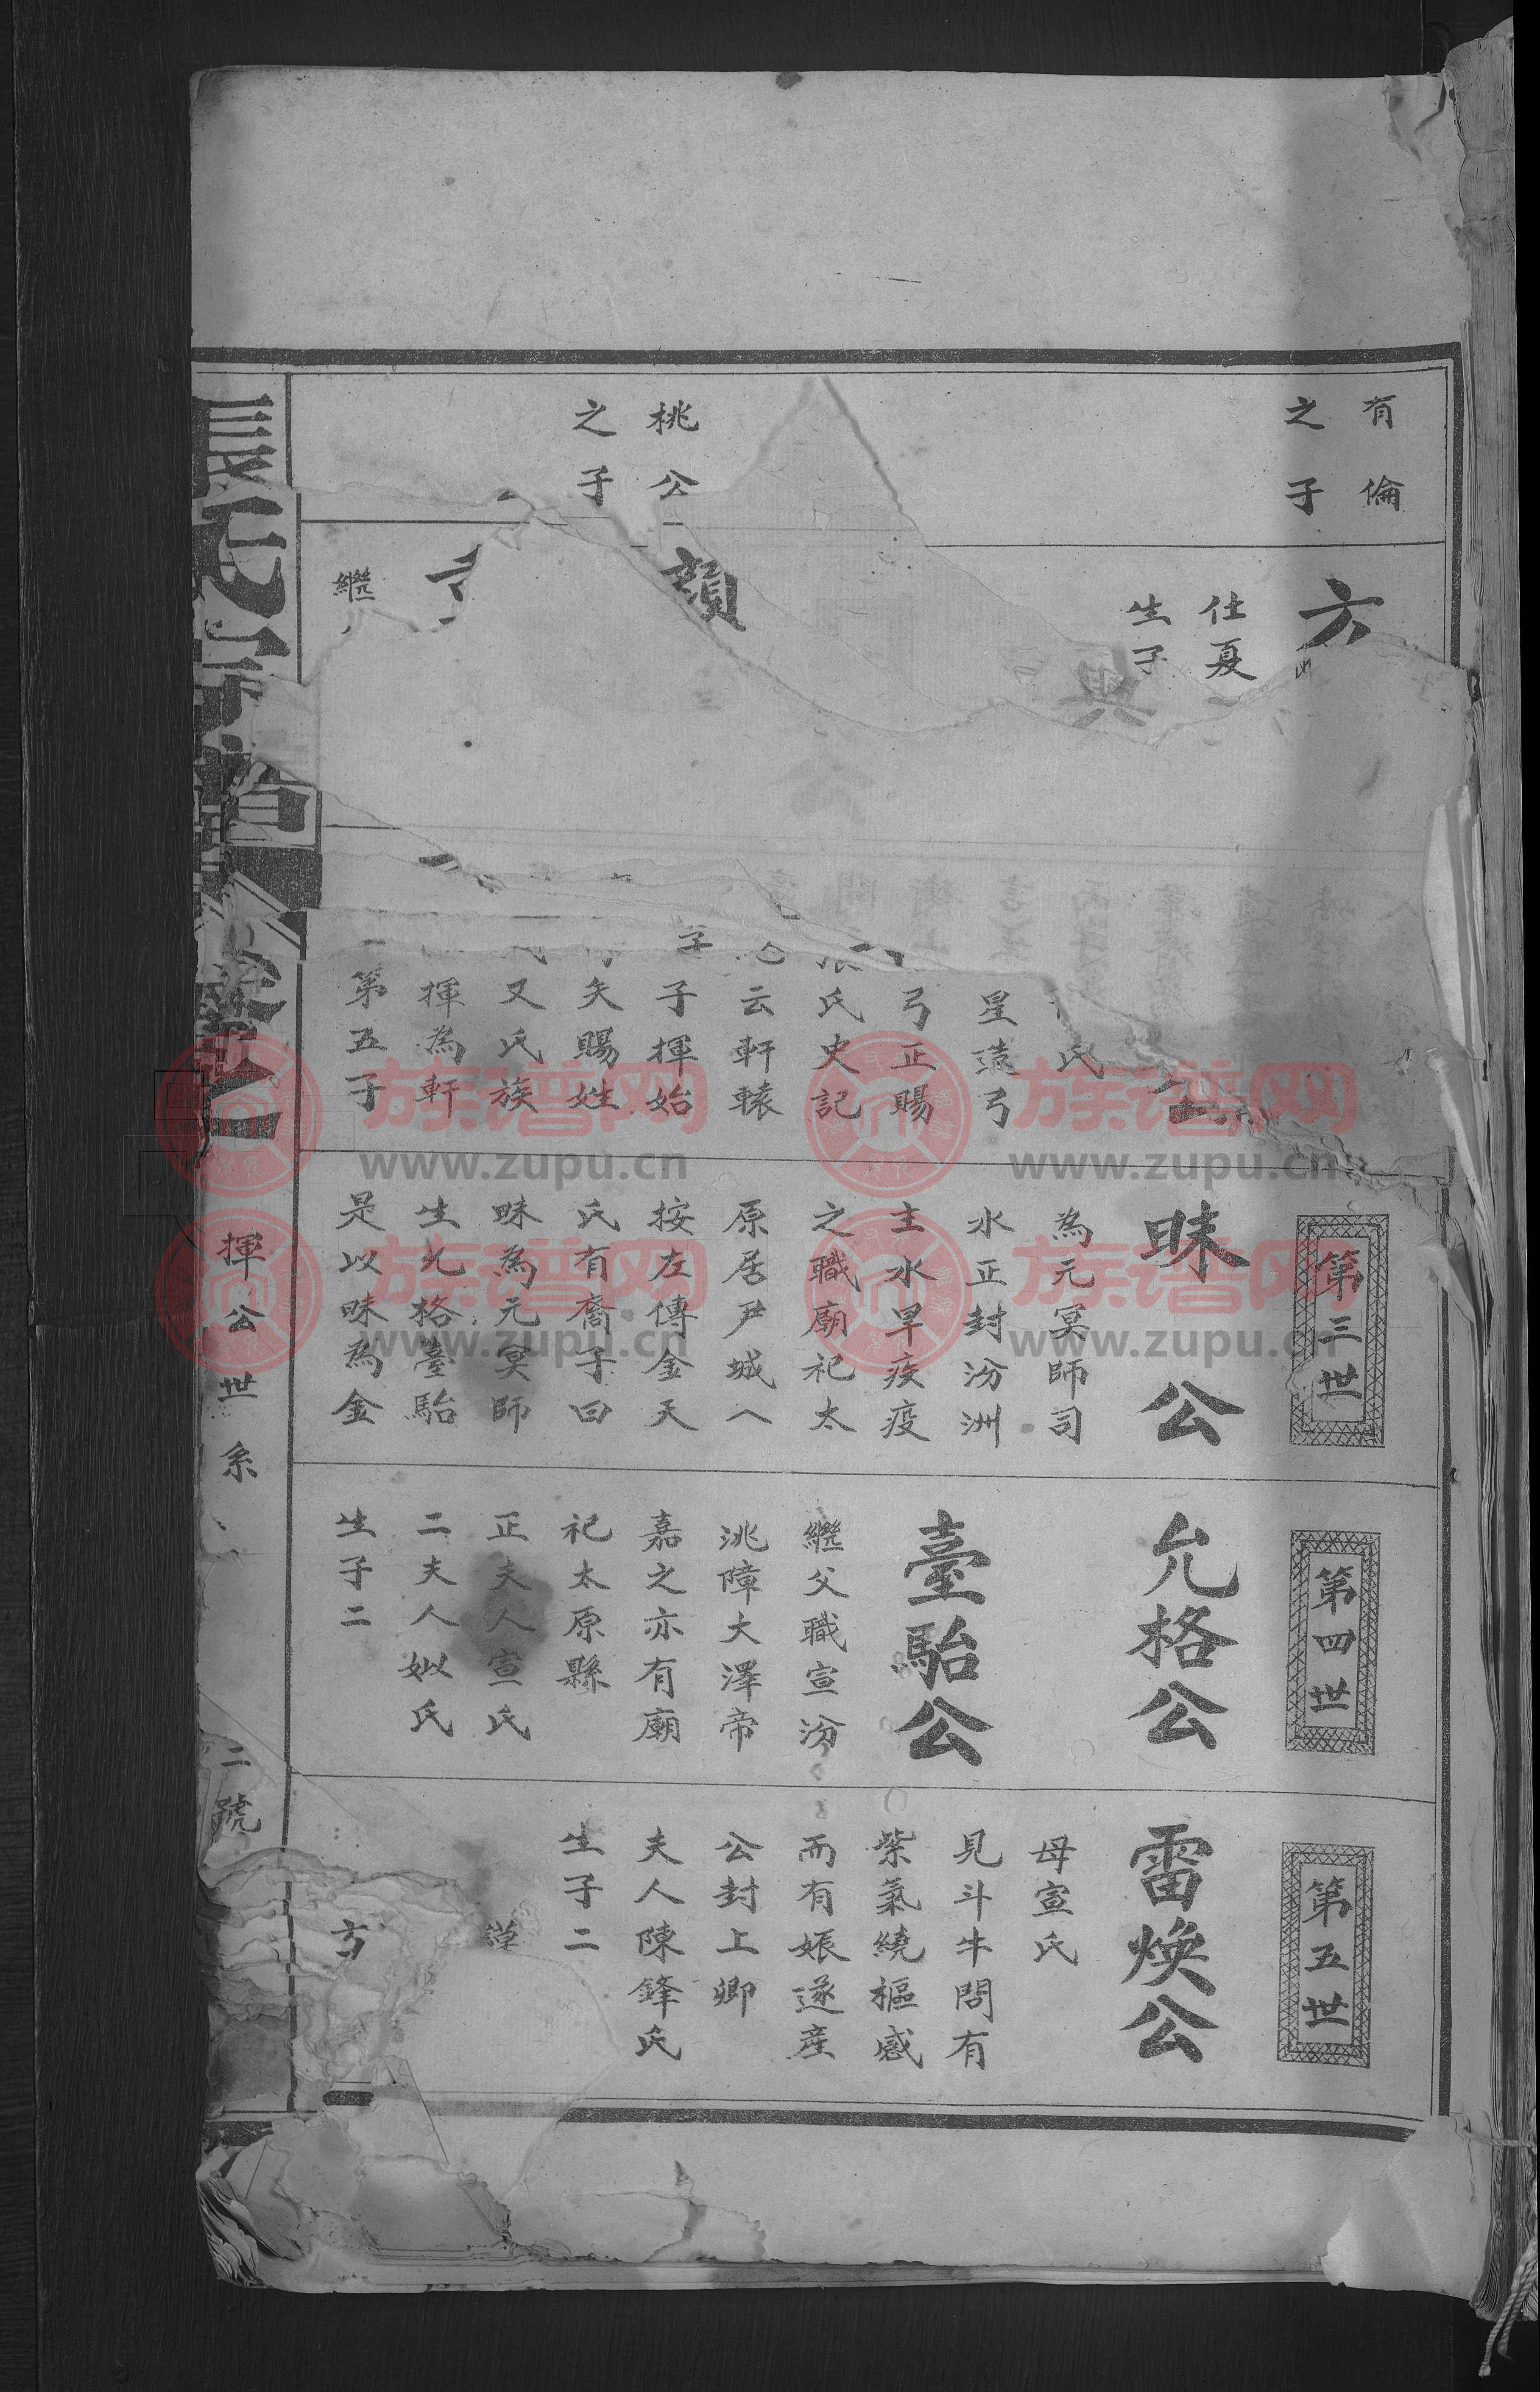 有倫
之子
桃公
之子
六
仕夏
生子
興
顏
繼
氏
星造弓
弓正賜
氏史記
云軒轅
子揮始
矢賜姓
又氏族
揮為軒
第五子
第三世
昧公
為元冥師司
水正封汾洲
主水旱疾疫
之職廟祀太
原居尹城八
按左傳金天
氏有裔子曰
昧為元冥師
生允格臺駘
是以昧為金
第四世
允格公
臺駘公
繼父職宣汾
洮障大澤帝
嘉之亦有廟
祀太原縣
正夫人宣氏
二夫人姒氏
生子二
第五世
雷煥公
母宣氏
見斗牛間有
紫氣繞樞感
而有娠遂産
公封上卿
夫人陳鋒氏
生子二
張氏宗譜
揮公世系
二號
族谱网
www.zupu.cn
族谱网
www.zupu.cn
族谱网
www.zupu.cn
族谱网
www.zupu.cn